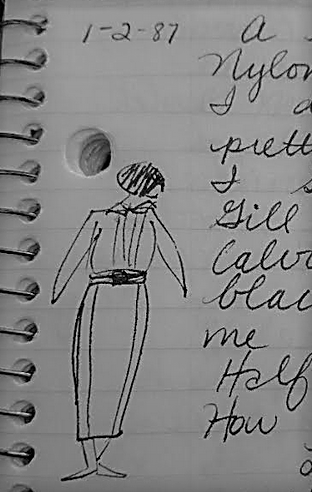 1-2-87 A
Nylon
I a
prett
I s
Gill
Calv
blac
me
Half
How